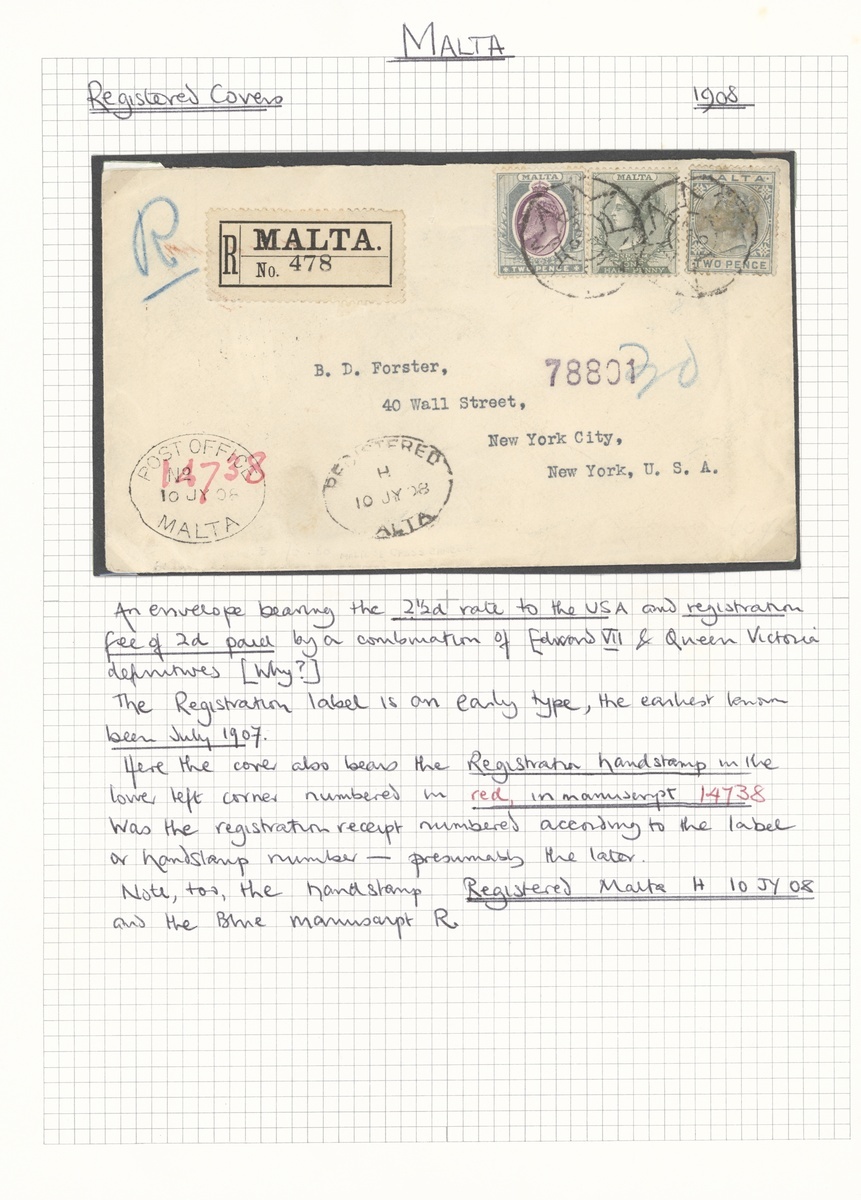 MALTA
Registered Covers
1908
R
R MALTA.
No. 478
MALTA
TWO PENCE
MALTA
HALFPENNY
MALTA
TWO PENCE
B. D. Forster,
40 Wall Street,
New York City,
New York, U. S. A.
78801
POST OFFICE
No
14738
10 JY 08
MALTA
REGISTERED
H
10 JY 08
ALTA
An envelope bearing the 2½d rate to the USA and registration
fee of 2d paid by a combination of Edward VII & Queen Victoria
definitives [Why?]
The Registration label is an early type, the earliest known
been July 1907.
Here the cover also bears the Registration handstamp in the
lower left corner numbered in red, in manuscript 14738
Was the registration receipt numbered according to the label
or handstamp number — presumably the later.
Note, too, the handstamp Registered Malta H 10 JY 08
and the Blue manuscript R.